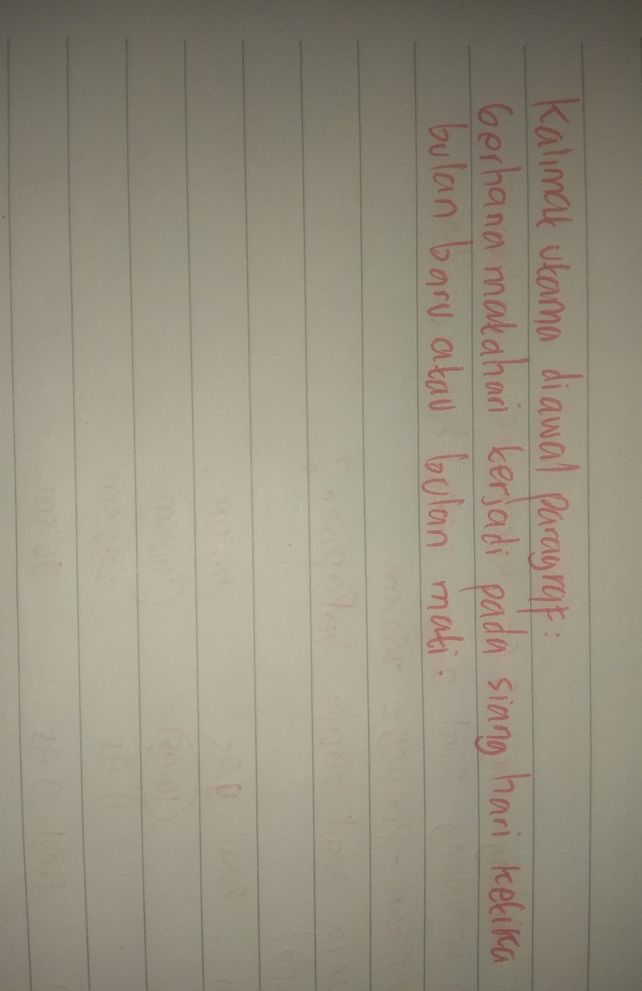 Kalimat utama diawal paragraf:
Gerhana matahari terjadi pada siang hari ketika
bulan baru atau bulan mati.